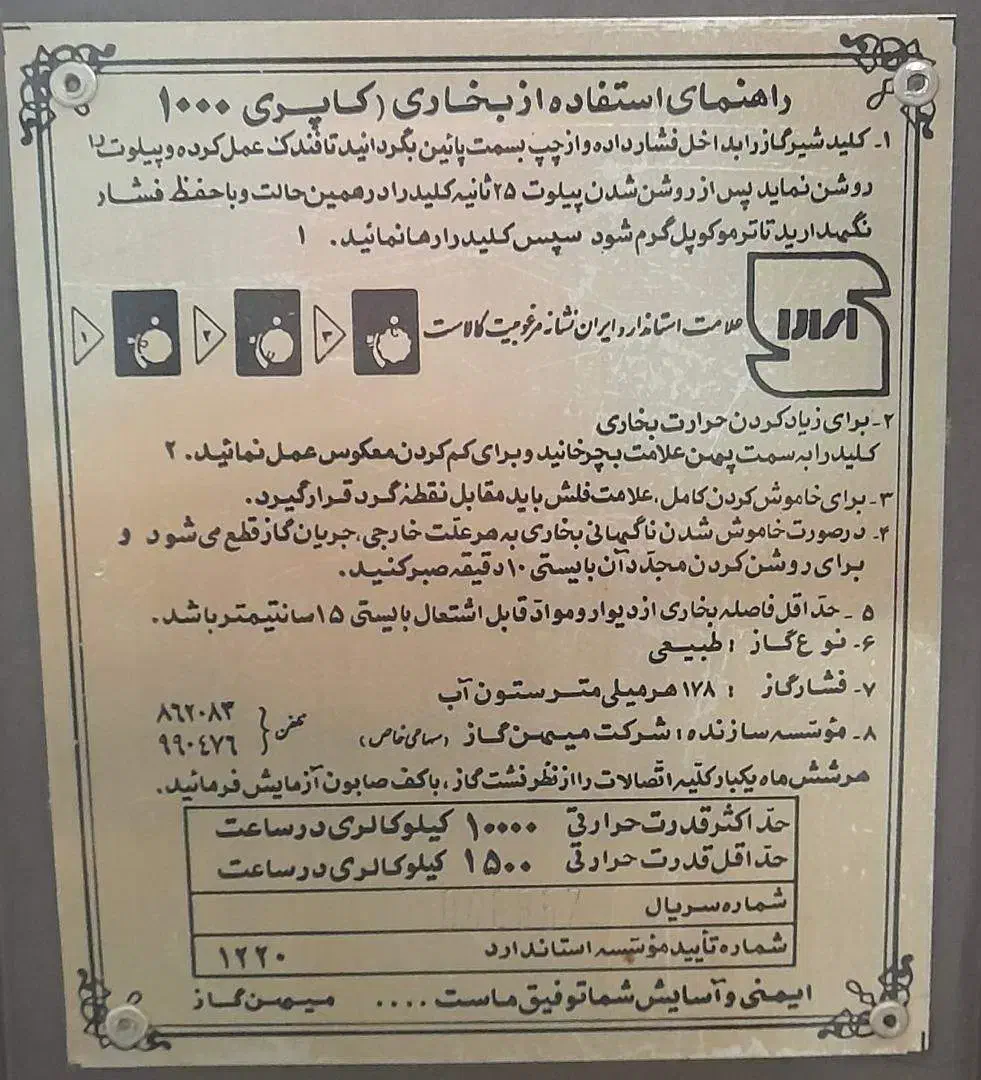 راهنمای استفاده از بخاری (کاپری ۱۰۰۰)
۱- کلید شیر گاز را بداخل فشار داده و از چپ بسمت پائین بگردانید تا فندک عمل کرده و پیلوت را
روشن نماید پس از روشن شدن پیلوت ۲۵ ثانیه کلید را در همین حالت و با حفظ فشار
نگهدارید تا ترموکوپل گرم شود سپس کلید را رها نمائید. ۱
علامت استاندارد ایران نشانه مرغوبیت کالاست
۳ ۲ ۱
۲- برای زیاد کردن حرارت بخاری
کلید را به سمت پهن علامت بچرخانید و برای کم کردن معکوس عمل نمائید. ۲
۳- برای خاموش کردن کامل، علامت فلش باید مقابل نقطهٔ گرد قرار گیرد.
۴- درصورت خاموش شدن ناگهانی بخاری به هر علت خارجی، جریان گاز قطع می شود و
برای روشن کردن مجدد آن بایستی ۱۰ دقیقه صبر کنید.
۵- حداقل فاصله بخاری از دیوار و مواد قابل اشتعال بایستی ۱۵ سانتیمتر باشد.
۶- نوع گاز : طبیعی
۷- فشار گاز : ۱۷۸ هر میلی متر ستون آب
۸- مؤسسه سازنده : شرکت میهن گاز (سهامی خاص) تلفن { ۸۶۲۰۸۳
۹۹۰۴۷۶
هر شش ماه یکبار کلیه اتصالات را از نظر نشت گاز، با کف صابون آزمایش فرمائید.
حداکثر قدرت حرارتی ۱۰۰۰۰ کیلوکالری در ساعت
حداقل قدرت حرارتی ۱۵۰۰ کیلوکالری در ساعت
شماره سریال
شماره تأیید مؤسسه استاندارد ۱۲۲۰
ایمنی و آسایش شما توفیق ماست .... میهن گاز